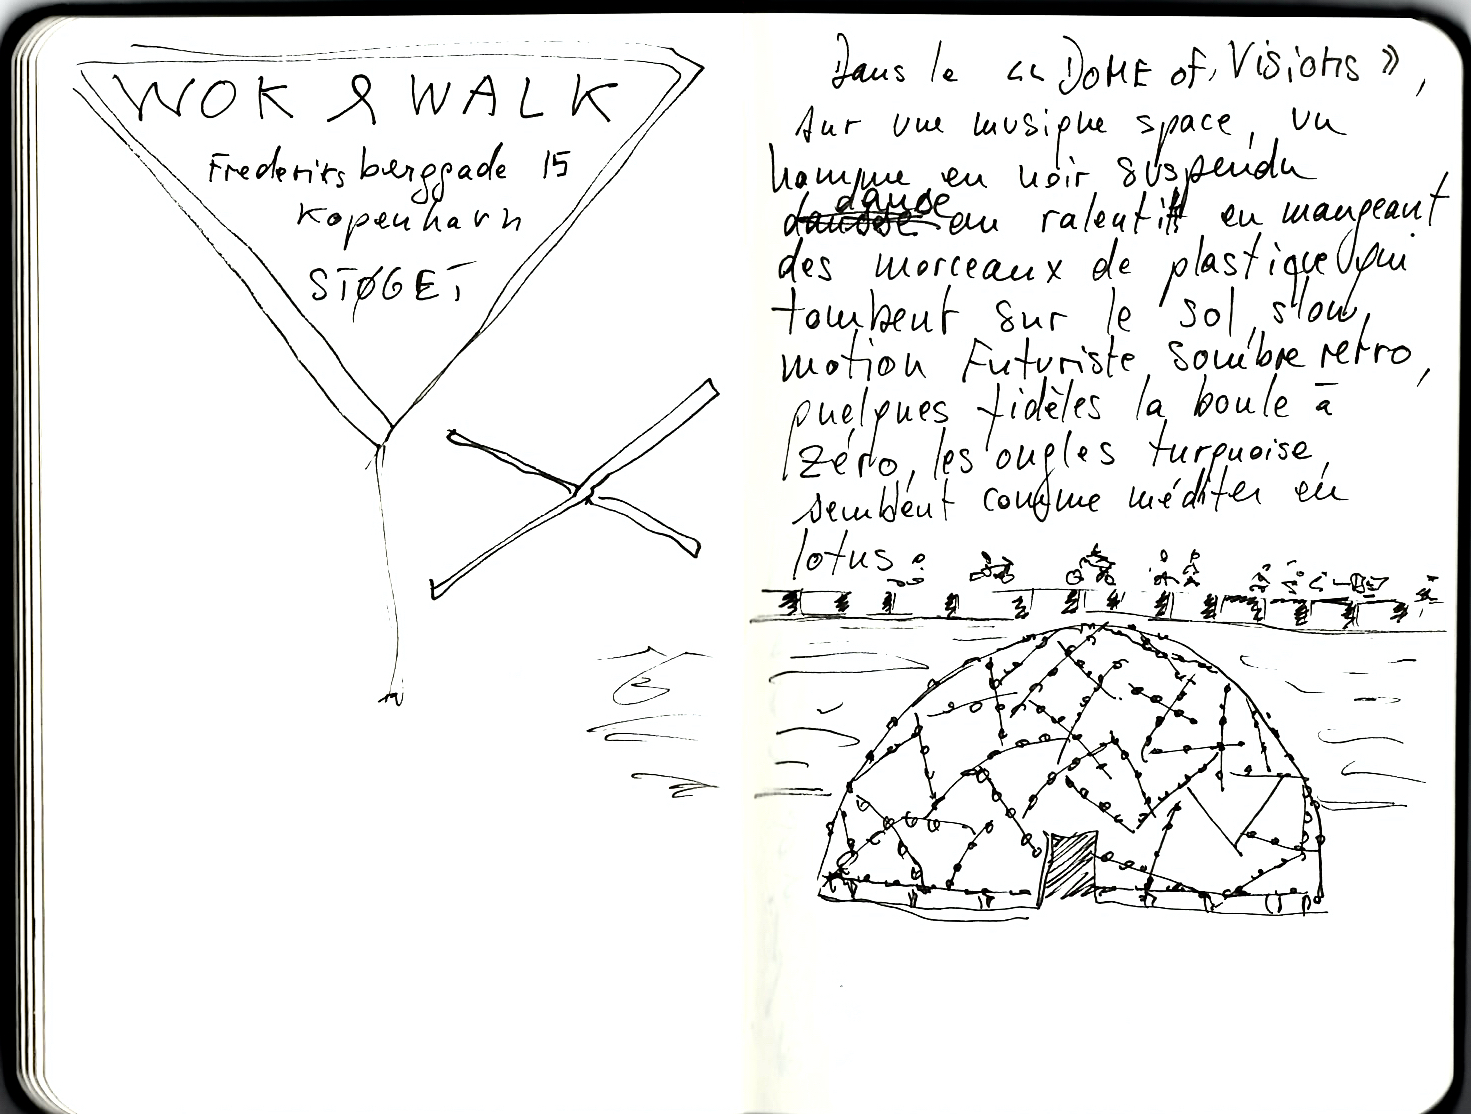 WOK & WALK
Frederiksberggade 15
Kopenhavn
STØGET
Dans le « DOME of Visions »,
sur une musique space, un
homme en noir suspendu
danse au ralenti en mangeant
des morceaux de plastique qui
tombent sur le sol, slow
motion futuriste, sombre retro,
quelques fidèles la boule à
zéro, les ongles turquoise,
semblent comme méditer en
lotus.